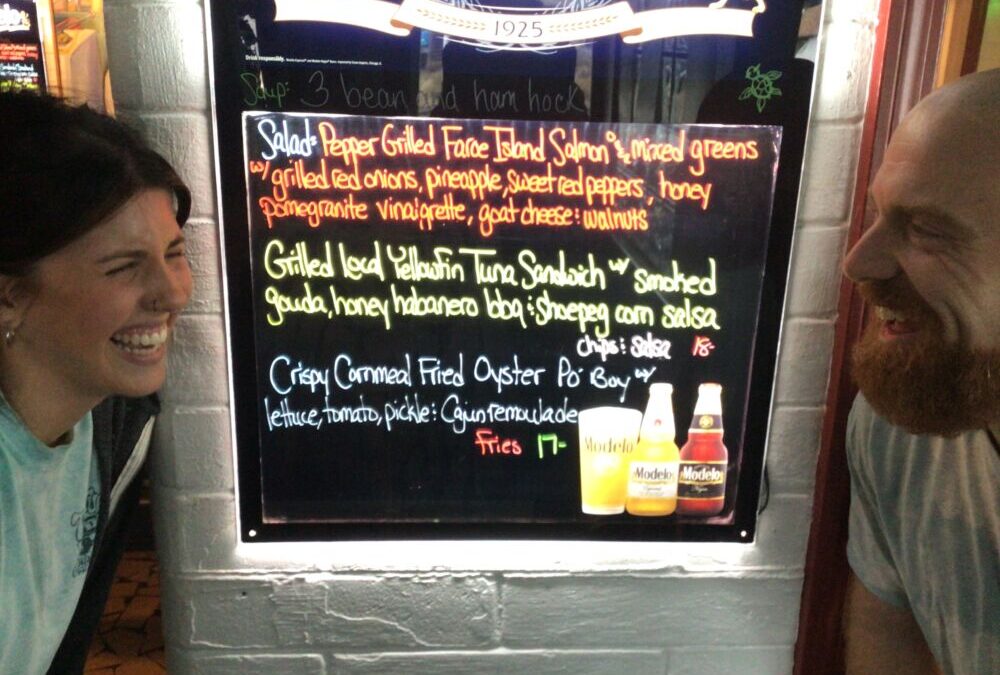 1925
Drink responsibly.
Soup: 3 bean and ham hock
Salad: Pepper Grilled Faroe Island Salmon mixed greens
w/ grilled red onions, pineapple, sweet red peppers, honey
pomegranite vinaigrette, goat cheese & walnuts
Grilled Local Yellowfin Tuna Sandwich w/ smoked
gouda, honey habanero bbq & shoepeg corn salsa
chips & salsa 18-
Crispy Cornmeal Fried Oyster Po' Boy w/
lettuce, tomato, pickle & Cajun remoulade
Fries 17-
Modelo
Modelo
Modelo